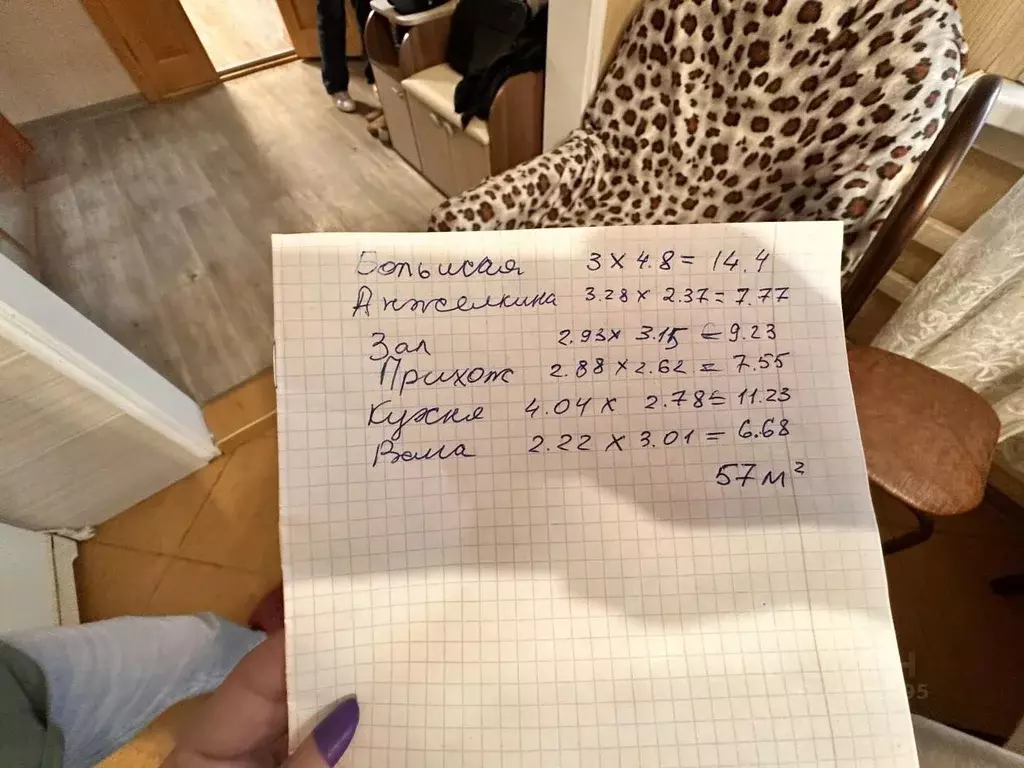 Большая 3 x 4.8 = 14.4
Анжелкина 3.28 x 2.37 = 7.77
Зал 2.93 x 3.15 = 9.23
Прихож 2.88 x 2.62 = 7.55
Кухня 4.04 x 2.78 = 11.23
2.22 x 3.01 = 6.68
57 м²